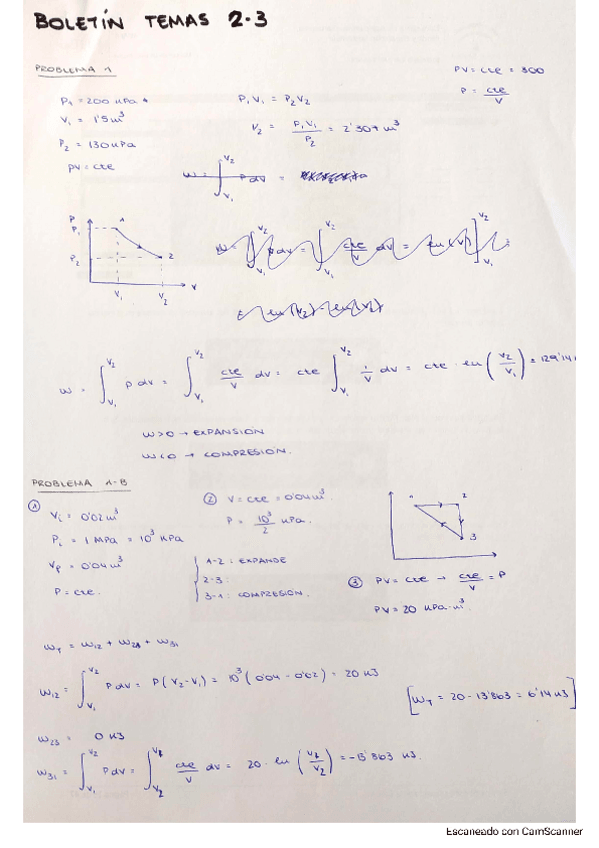 BOLETÍN TEMAS 2-3
PROBLEMA 1
PV = cte = 300
P = cte / V
P₁ = 200 kPa
V₁ = 1'5 m³
P₂ = 130 kPa
PV = cte
P₁V₁ = P₂V₂
V₂ = P₁V₁ / P₂ = 2'307 m³
P
P₁
P₂
1
2
V₁
V₂
V
W = ∫ V₁ V₂ P dV = ∫ V₁ V₂ cte/V dV = cte ∫ V₁ V₂ 1/V dV = cte · ln (V₂/V₁) = 129'14
W>0 → EXPANSION
W<0 → COMPRESION.
PROBLEMA 1-B
① V₁ = 0'02 m³
P₁ = 1 MPa = 10³ kPa
VF = 0'04 m³
P = cte.
② V = cte = 0'04 m³.
P = 10³/2 kPa.
1-2: EXPANDE
2-3:
3-1: COMPRESION.
1
2
3
③ PV = cte → cte/V = P
PV = 20 kPa·m³
W₁₂ = ∫ V₁ V₂ P dV = P(V₂-V₁) = 10³ (0'04 - 0'02) = 20 kJ
[WT = 20 - 13'863 = 6'14 kJ]
W₂₃ = 0 kJ